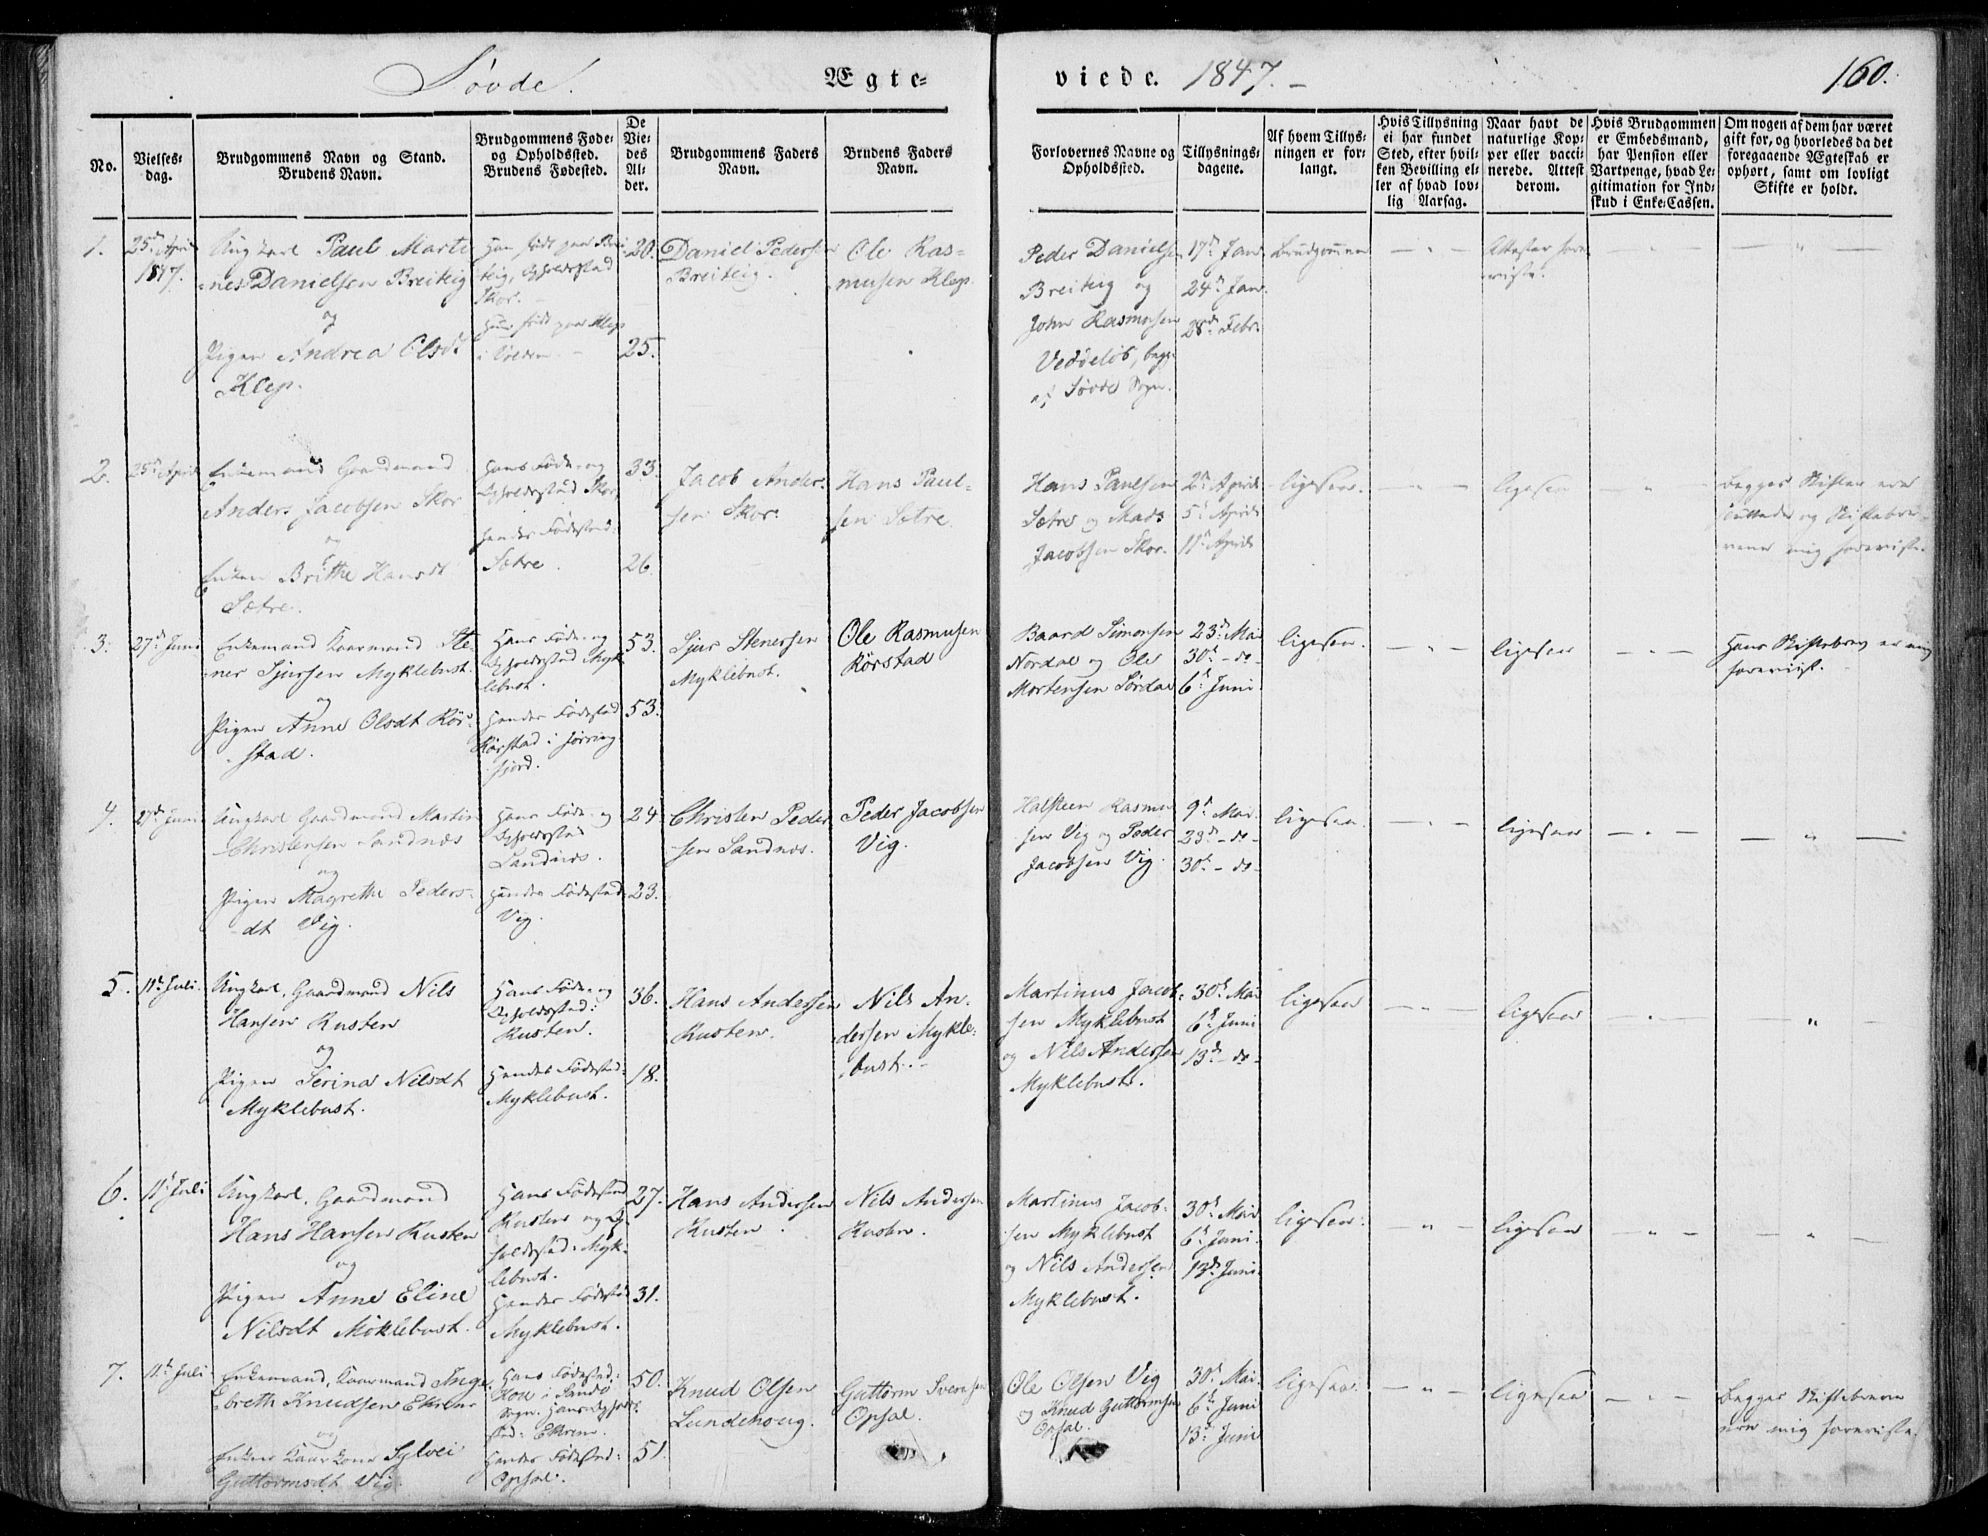 Søvde.
Ægte=
viede. 1847.-
160.
No.
Vielses=
dag.
Brudgommens Navn og Stand.
Brudens Navn.
Brudgommens Føde=
og Opholdssted.
Brudens Fødested.
De
Vie=
des
Al=
der.
Brudgommens Faders
Navn.
Brudens Faders
Navn.
Forlovernes Navne og
Opholdssted.
Tillysnings=
dagene.
Af hvem Tillys=
ningen er for=
langt.
Hvis Tillysning
ei har fundet
Sted, efter hvil=
ken Bevilling el=
ler af hvad lov=
lig Aarsag.
Naar havt de
naturlige Kop=
per eller vacci=
nerede. Attest
derom.
Hvis Brudgommen
er Embedsmand,
har Pension eller
Vartpenge, hvad Le=
gitimation for Ind=
skud i Enke-Cassen.
Om nogen af dem har været
gift for, og hvorledes da det
foregaaende Ægteskab er
ophørt, samt om lovligt
Skifte er holdt.
1.
25de April
1847.
Ungkarl Paul Marti
nes Danielsen Breiteig
og
Pigen Andrea Olsdt
Klep.
Han født paa Brei
teig, Opholdssted
Skor.
Hun født paa Klep
i Volden.
20.
25.
Daniel Pedersen
Breiteig.
Ole Ras=
musen Klep.
Peder Danielsen
Breiteig og
John Rasmusen
Vedøeløb, begge
af Søvde Sogn.
17de Jan.
24de Jan.
28de Febr.
Brudgommen
Attester fore
viiste.
2.
25de April
Enkemand Gaardmand
Anders Jacobsen Skor
og
Enken Brithe Hansdt
Sætre.
Hans Føde- og
Opholdssted Skor,
hendes Fødested:
Sætre.
33.
26.
Jacob Ander=
sen Skor.
Hans Paul=
sen Sætre.
Hans Paulsen
Sætre og Mads
Jacobsen Skor.
2de April
5te April
11te April
ligesaa.
ligesaa
Begges Skifter ere
sluttede og Skiftebre=
vene mig foreviiste.
3.
27de Juni
Enkemand Kaarmand Ste
ner Sjursen Myklebust
og
Pigen Anne Olsdt Rør=
stad.
Hans Føde- og
Opholdssted Myk
lebust.
Hendes Fødested
Rørstad i Jørring
fjord.
53.
53.
Sjur Stenersen
Myklebust.
Ole Rasmusen
Rørstad
Baard Simonsen
Nordal og Ole
Mortensen Sørdal
23de Mai
30te - do -
6te Juni.
ligesaa.
ligesaa
Hans Skiftebrev er mig
foreviist.
4.
27de Juni
Ungkarl Gaardmand Martin
Christensen Sandnæs
og
Pigen Magrethe Peders=
dt Vig.
Hans Føde- og
Opholdssted
Sandnæs.
Hendes Fødested:
Vig.
24.
23.
Christen Peder
sen Sandnæs.
Peder Jacobsen
Vig.
Halsteen Rasmu
sen Vig og Peder
Jacobsen Vig.
9de Mai.
23de - do -
30te - do -
ligesaa.
ligesaa
5.
11te Juli.
Ungkarl, Gaardmand Nils
Hansen Rusten
og
Pigen Serina Nilsdt
Myklebust.
Hans Føde- og
Opholdssted:
Rusten.
Hendes Fødested
Myklebust.
36.
18.
Hans Andersen
Rusten.
Nils An=
dersen Mykle=
bust.-
Martinus Jacob=
sen Myklebust
og Nils Andersen
Myklebust.
30te Mai
6te Juni
13de - do -
ligesaa
ligesaa
6.
11te Juli
Ungkarl, Gaardmand
Hans Hansen Rusten
og
Pigen Anne Eline
Nilsdt Möklebust.
Hans Fødested
Rusten og Op
holdssted: Myk=
lebust.
Hendes Fødested
Myklebust.
27.
31.
Hans Andersen
Rusten.
Nils Andersen
Rusten.
Martinus Jacob=
sen Myklebust
og Nils Andersen
Myklebust.
30te Mai
6te Juni.
13de Juni.
ligesaa.
ligesaa
7.
11te Juli
Enkemand, Kaarmand Inge
breth Knudsen Ekrene
og
Enken Kaarkone Sylvei
Guttormsdt Vig.
Hans Fødested:
Hou i Sandø
Sogn. Hans Opholds
sted: Ekrem.
Hendes Fødested:
Opsal.
50.
51.
Knud Olsen
Lundehoug.
Guttorm Svensen
Opsal.
Ole Olsen Vig
og Knud Guttormsen
Opsal.
30te Mai.
6te Juni
13de Juni
ligesaa.
ligesaa
Begges Skiftebreve
ere mig foreviiste.